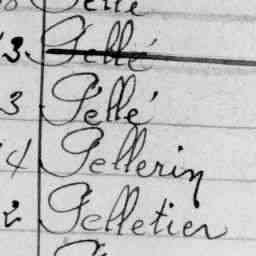 Pellé
3 Pellé
3 Pellé
4 Pellerin
2 Pelletier